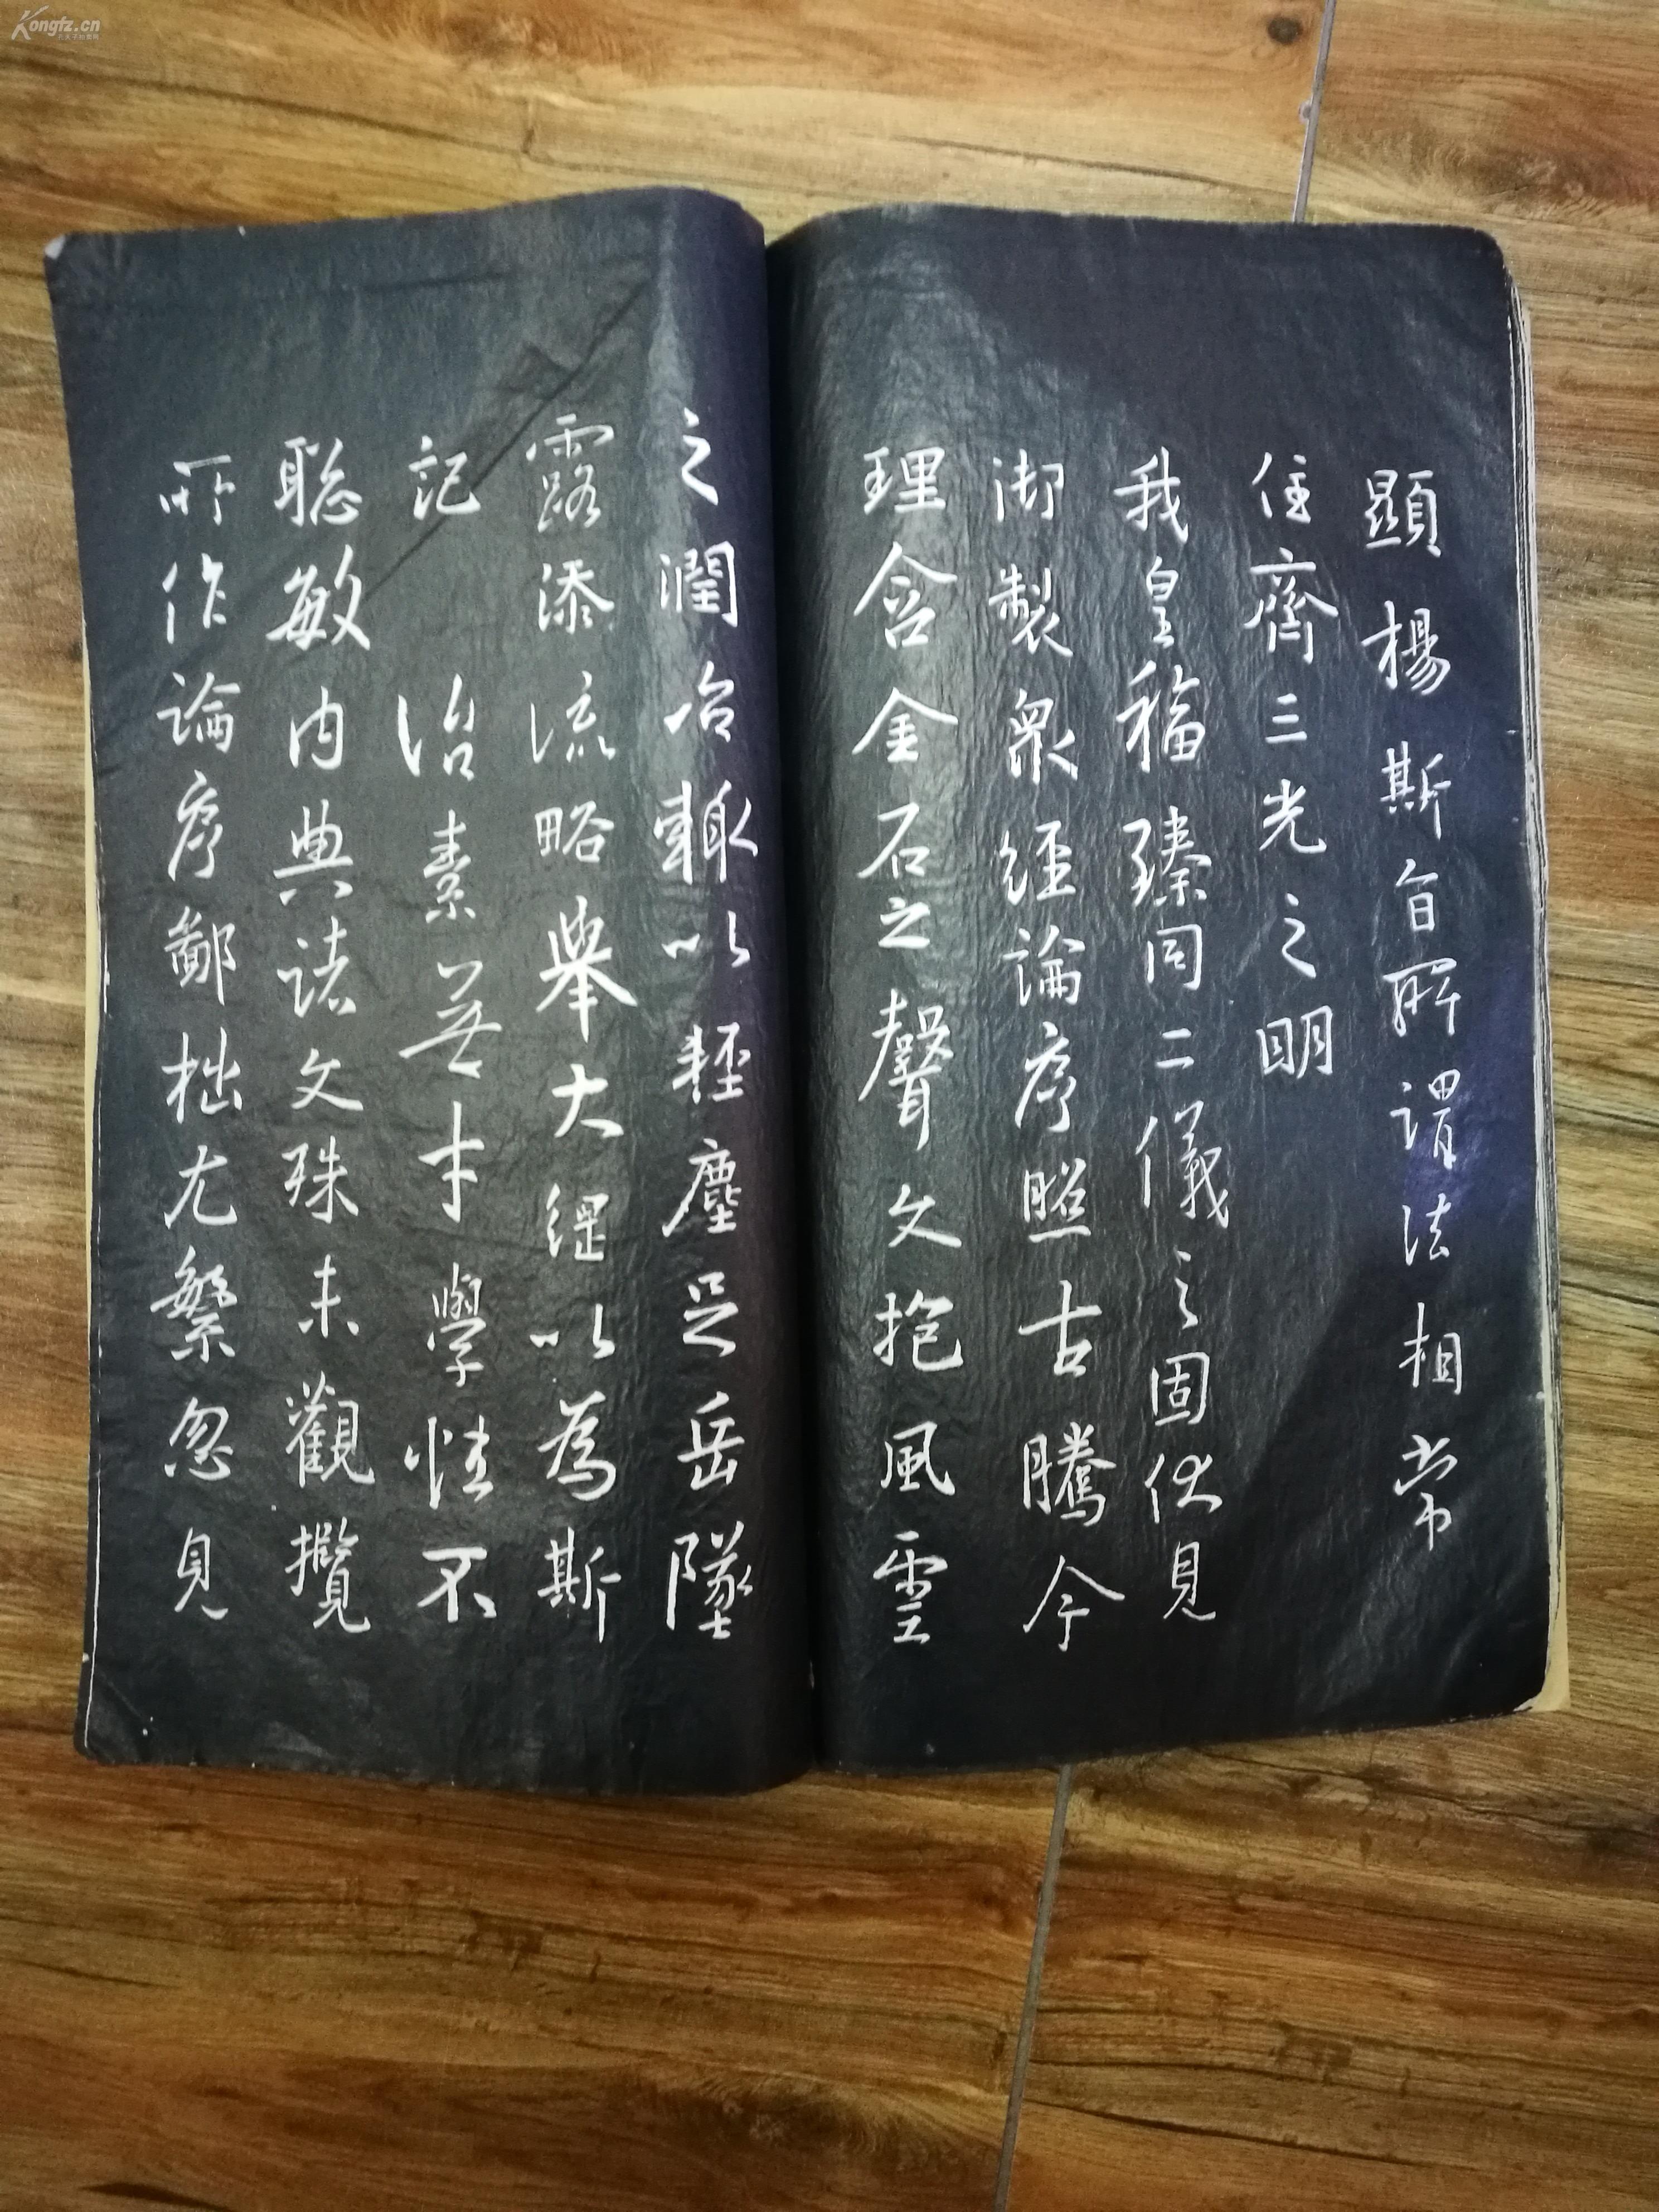 Kongfz.cn
顯楊斯旨所謂法相常
住齊三光之明
我皇福臻同二儀之固伏見
御製眾經論序照古騰今
理含金石之聲文抱風雲
之潤治輙以輕塵足岳墜
露添流略舉大綱以為斯
記 治素無才學性不
聰敏內典諸文殊未觀攬
所作論序鄙拙尤繁忽見